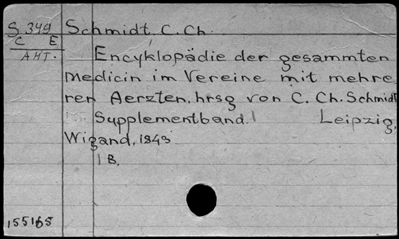 S 349 Schmidt, C. Ch.
C E
AHT.
Encyklopädie der gesammten
Medicin im Vereine mit mehre-
ren Aerzten, hrsg von C. Ch. Schmidt
Supplementband. Leipzig,
Wigand, 1843
1 B.
155165